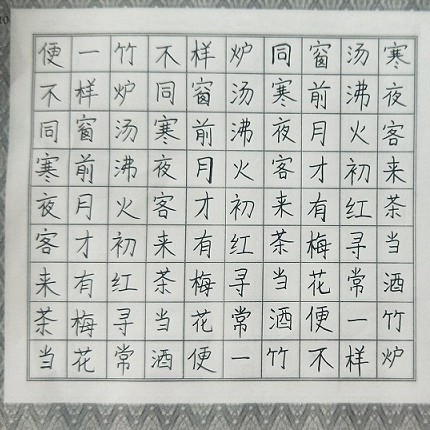 寒夜客来茶当酒竹炉
汤沸火初红寻常一样
窗前月才有梅花便不
同寒夜客来茶当酒竹
炉汤沸火初红寻常一
样窗前月才有梅花便
不同寒夜客来茶当酒
竹炉汤沸火初红寻常
一样窗前月才有梅花
便不同寒夜客来茶当